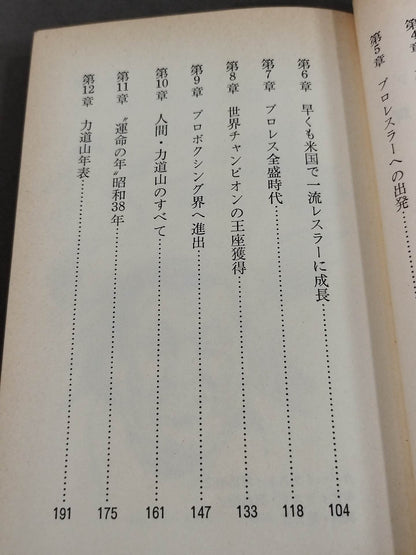 第4章
第5章 プロレスラーへの出発
第6章 早くも米国で一流レスラーに成長 104
第7章 プロレス全盛時代 118
第8章 世界チャンピオンの王座獲得 133
第9章 プロボクシング界へ進出 147
第10章 人間・力道山のすべて 161
第11章 〝運命の年〟昭和38年 175
第12章 力道山年表 191